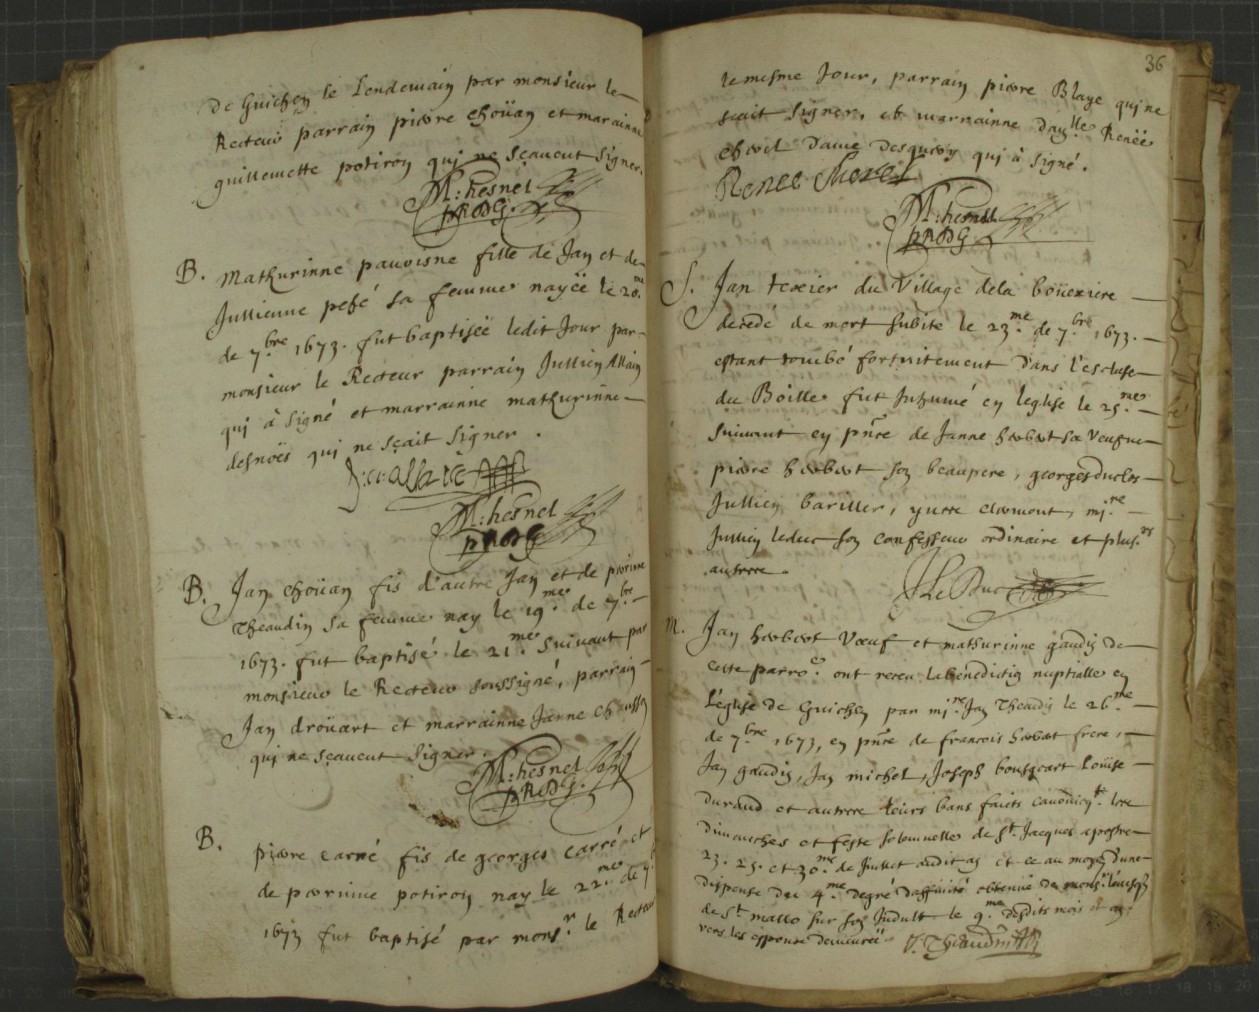 de Guichen le Lendemain par monsieur le
Recteur parrain pierre choüan et marainne
guillemette potiron qui ne sçavent signer.
M: hesnel
pRBDG.
B. Mathurinne pavoisne fille de Jan et de
Jullienne pesé sa femme nayëë le 20.me
de 7.bre 1673. fut baptisëë ledit Jour par
monsieur le Recteur parrain Jullien Allain
qui à signé et marrainne mathurinne
desnöës qui ne sçait signer.
M: hesnel
pRBDG
B. Jan choüan fis d'autre Jan et de pierinne
Theaudin sa femme nay le 19.me de 7.bre
1673. fut baptisé le 21.me suivant par
monsieur le Recteur soussigné, parrain
Jan droüart et marrainne Janne Chausson
qui ne sçavent signer.
M: hesnel
pRBDG.
B. pierre carré fis de georges carré et
de perinne potiron nay le 22.me de 7.
1673 fut baptisé par mons.r le Recteur
36
le mesme Jour, parrain pierre Blaye qui ne
scait signer, et marrainne dam.lle Renëë
Morel dame desquroy qui à signé.
Renee Morel
M: hesnel
pRBDG
S. Jan texier du Village dela boüexiere
decedé de mort subite le 23.me de 7.bre 1673.
estant tombé fortuitement dans l'escluse
du Boille fut Inhumé en leglise le 25.me
suivant en pñce de Janne herbert sa Veufue
pierre herbert son beaupere, georges duclos
Jullien bariller, yuette clermont, mi.re
Jullien leduc son confesseur ordinaire et plus.rs
autrere.
J Le Duc
m. Jan herbert Vœuf et mathurinne gaudin de
cette parro.e ont receu la benediction nuptialle en
L'eglise de Guichen par mi.re Jan Theaudin le 26.me
de 7.bre 1673, en pñce de francois herbert frere,
Jan gaudin, Jan michel, Joseph boutscart Loüise
durand et autrere leurs bans faicts canonicq.t lere
dimanches et feste solomnelle de S.t Jacques apostre
23. 25. et 30.me de Juillet audit an et ce au moyen dune
dispense du 4.me degré daffinité obtenüe de mons.r l'euesque
de S.t malo sur son Indult le 9.me desdits mois et an
vers les espouse demeurëë J. Theaudin